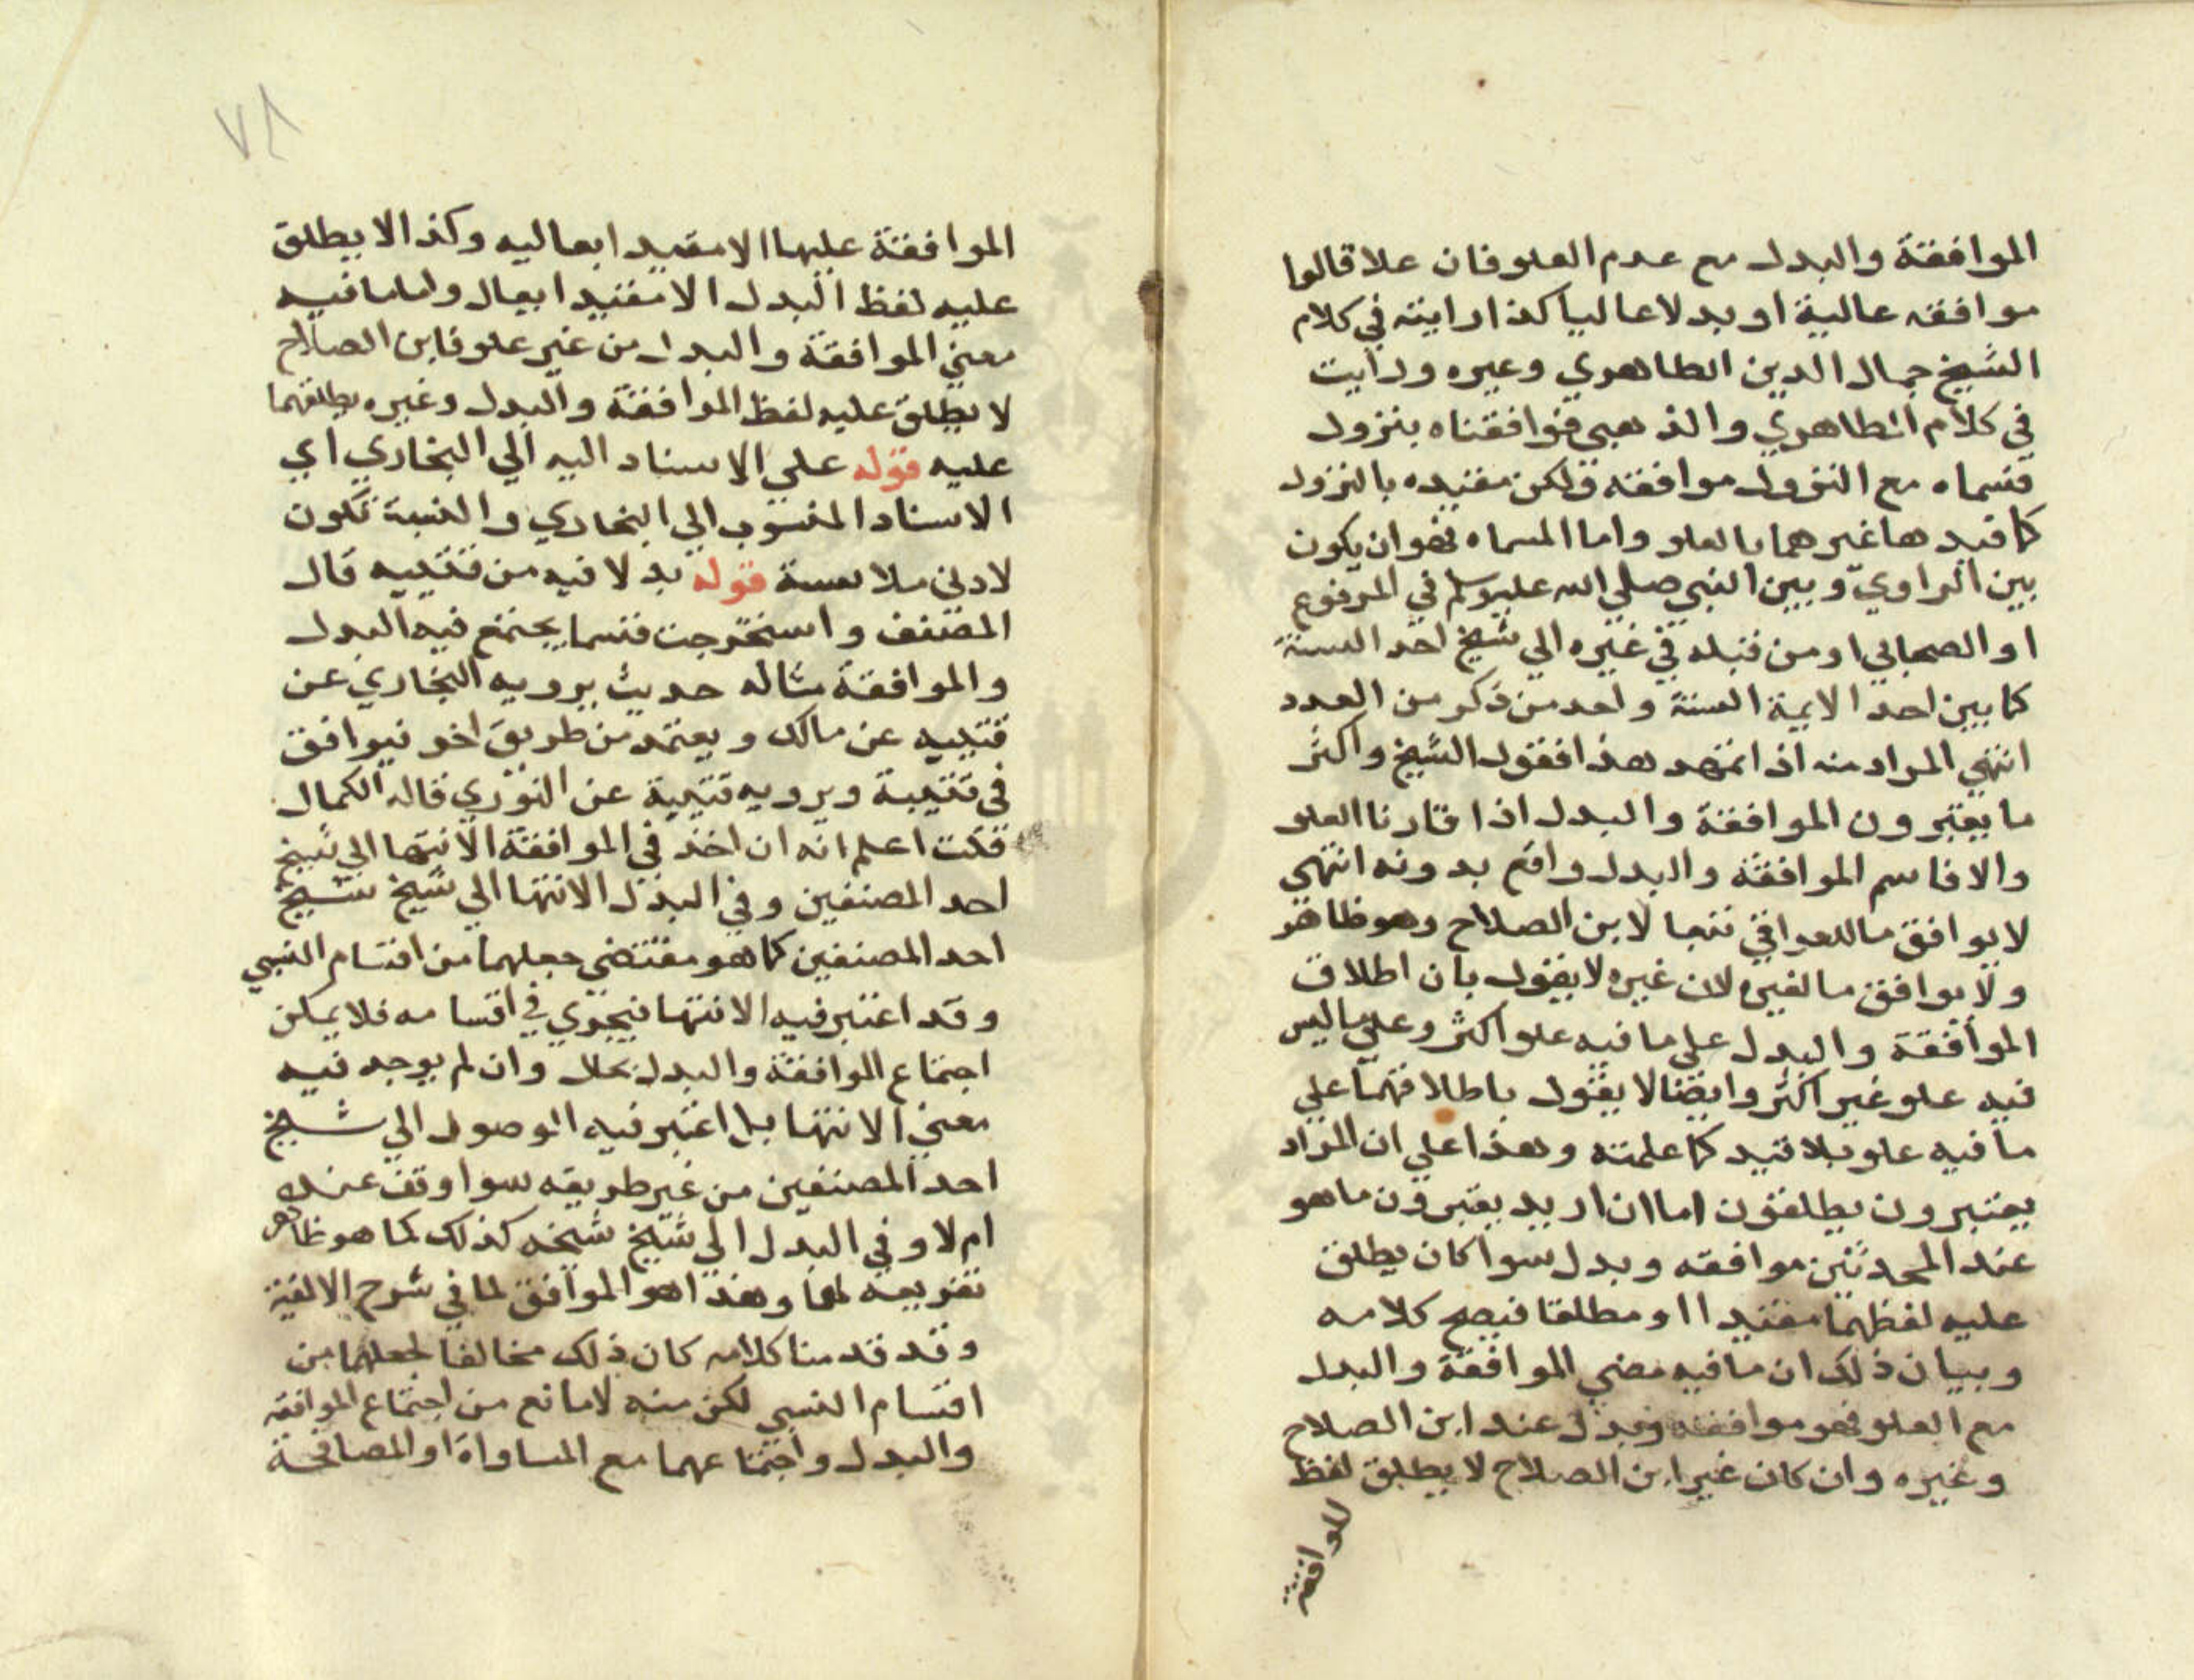 الموافقة والبدل مع عدم العلو فان علا قالوا
موافقه عالية او بدلا عاليا كذا رايته في كلام
الشيخ جمال الدين الطاهري وغيره ورايت
في كلام الطاهري والذهبي فوافقناه بنزول
فسماه مع النزول موافقة ولكن مقيده بالنزول
كما قيدها غيرهما بالعلو واما المساه فهو ان يكون
بين الراوي وبين النبي صلى الله عليه وسلم في المرفوع
او الصحابي او من قبله في غيره الي شيخ احد الستة
كما بين احد الايمة الستة واحد من ذكر من العدد
انتهي المراد منه اذا تمهد هذا فقول الشيخ واكثر
ما يعتبرون الموافقة والبدل اذا قارنا العلو
والا فاسم الموافقة والبدل واقع بدونه انتهي
لا يوافق ما للعراقي تبعا لابن الصلاح وهو ظاهر
ولا يوافق ما لغيره لان غيره لا يقول بان اطلاق
الموافقة والبدل علي ما فيه علو اكثر وعلي ما ليس
فيه علو غير اكثر وايضا لا يقول باطلاقهما علي
ما فيه علو بلا قيد كما علمته وهذا علي ان المراد
يعتبرون يطلقون اما ان اريد يعتبرون ما هو
عند المحدثين موافقه وبدل سوا كان يطلق
عليه لفظهما مقيدا او مطلقا فيصح كلامه
وبيان ذلك ان ما فيه معني الموافقة والبدل
مع العلو فهو موافقه وبدل عند ابن الصلاح
وغيره وان كان غير ابن الصلاح لا يطلق لفظ
الموافقة
٧٨
الموافقة عليها الا مقيدا بعاليه وكذا لا يطلق
عليه لفظ البدل الا مقيدا بعال واما ما فيه
معني الموافقة والبدل من غير علو فابن الصلاح
لا يطلق عليه لفظ الموافقة والبدل وغيره يطلقهما
عليه قوله علي الاسناد اليه الي البخاري اي
الاسناد المنسوب الي البخاري والنسبة تكون
لادني ملابسة قوله بدلا فيه من قتيبه قال
المصنف واستخرجت قسما يجتمع فيه البدل
والموافقة مثاله حديث يرويه البخاري عن
قتيبه عن مالك ويعتمد من طريق اخر فيوافق
في قتيبة ويرويه قتيبة عن الثوري قاله الكمال
قلت اعلم انه ان اخذ في الموافقة الانتها الي شيخ
احد المصنفين وفي البدل الانتها الي شيخ شيخ
احد المصنفين كما هو مقتضي جعلهما من اقسام النسبي
وقد اعتبر فيه الانتها فيجري في اقسامه فلا يمكن
اجتماع الموافقة والبدل بحال وان لم يوجد فيه
معني الانتها بل اعتبر فيه الوصول الي شيخ
احد المصنفين من غير طريقه سوا وقف عنده
ام لا وفي البدل الي شيخ شيخه كذلك كما هو ظاهر
تعريفه لهما وهذا هو الموافق لما في شرح الالفية
وقد قدمنا كلامه كان ذلك مخالفا لجعلهما من
اقسام النسبي لكن منه لا مانع من اجتماع الموافقه
والبدل واجتماعهما مع المساواة او المصافحة